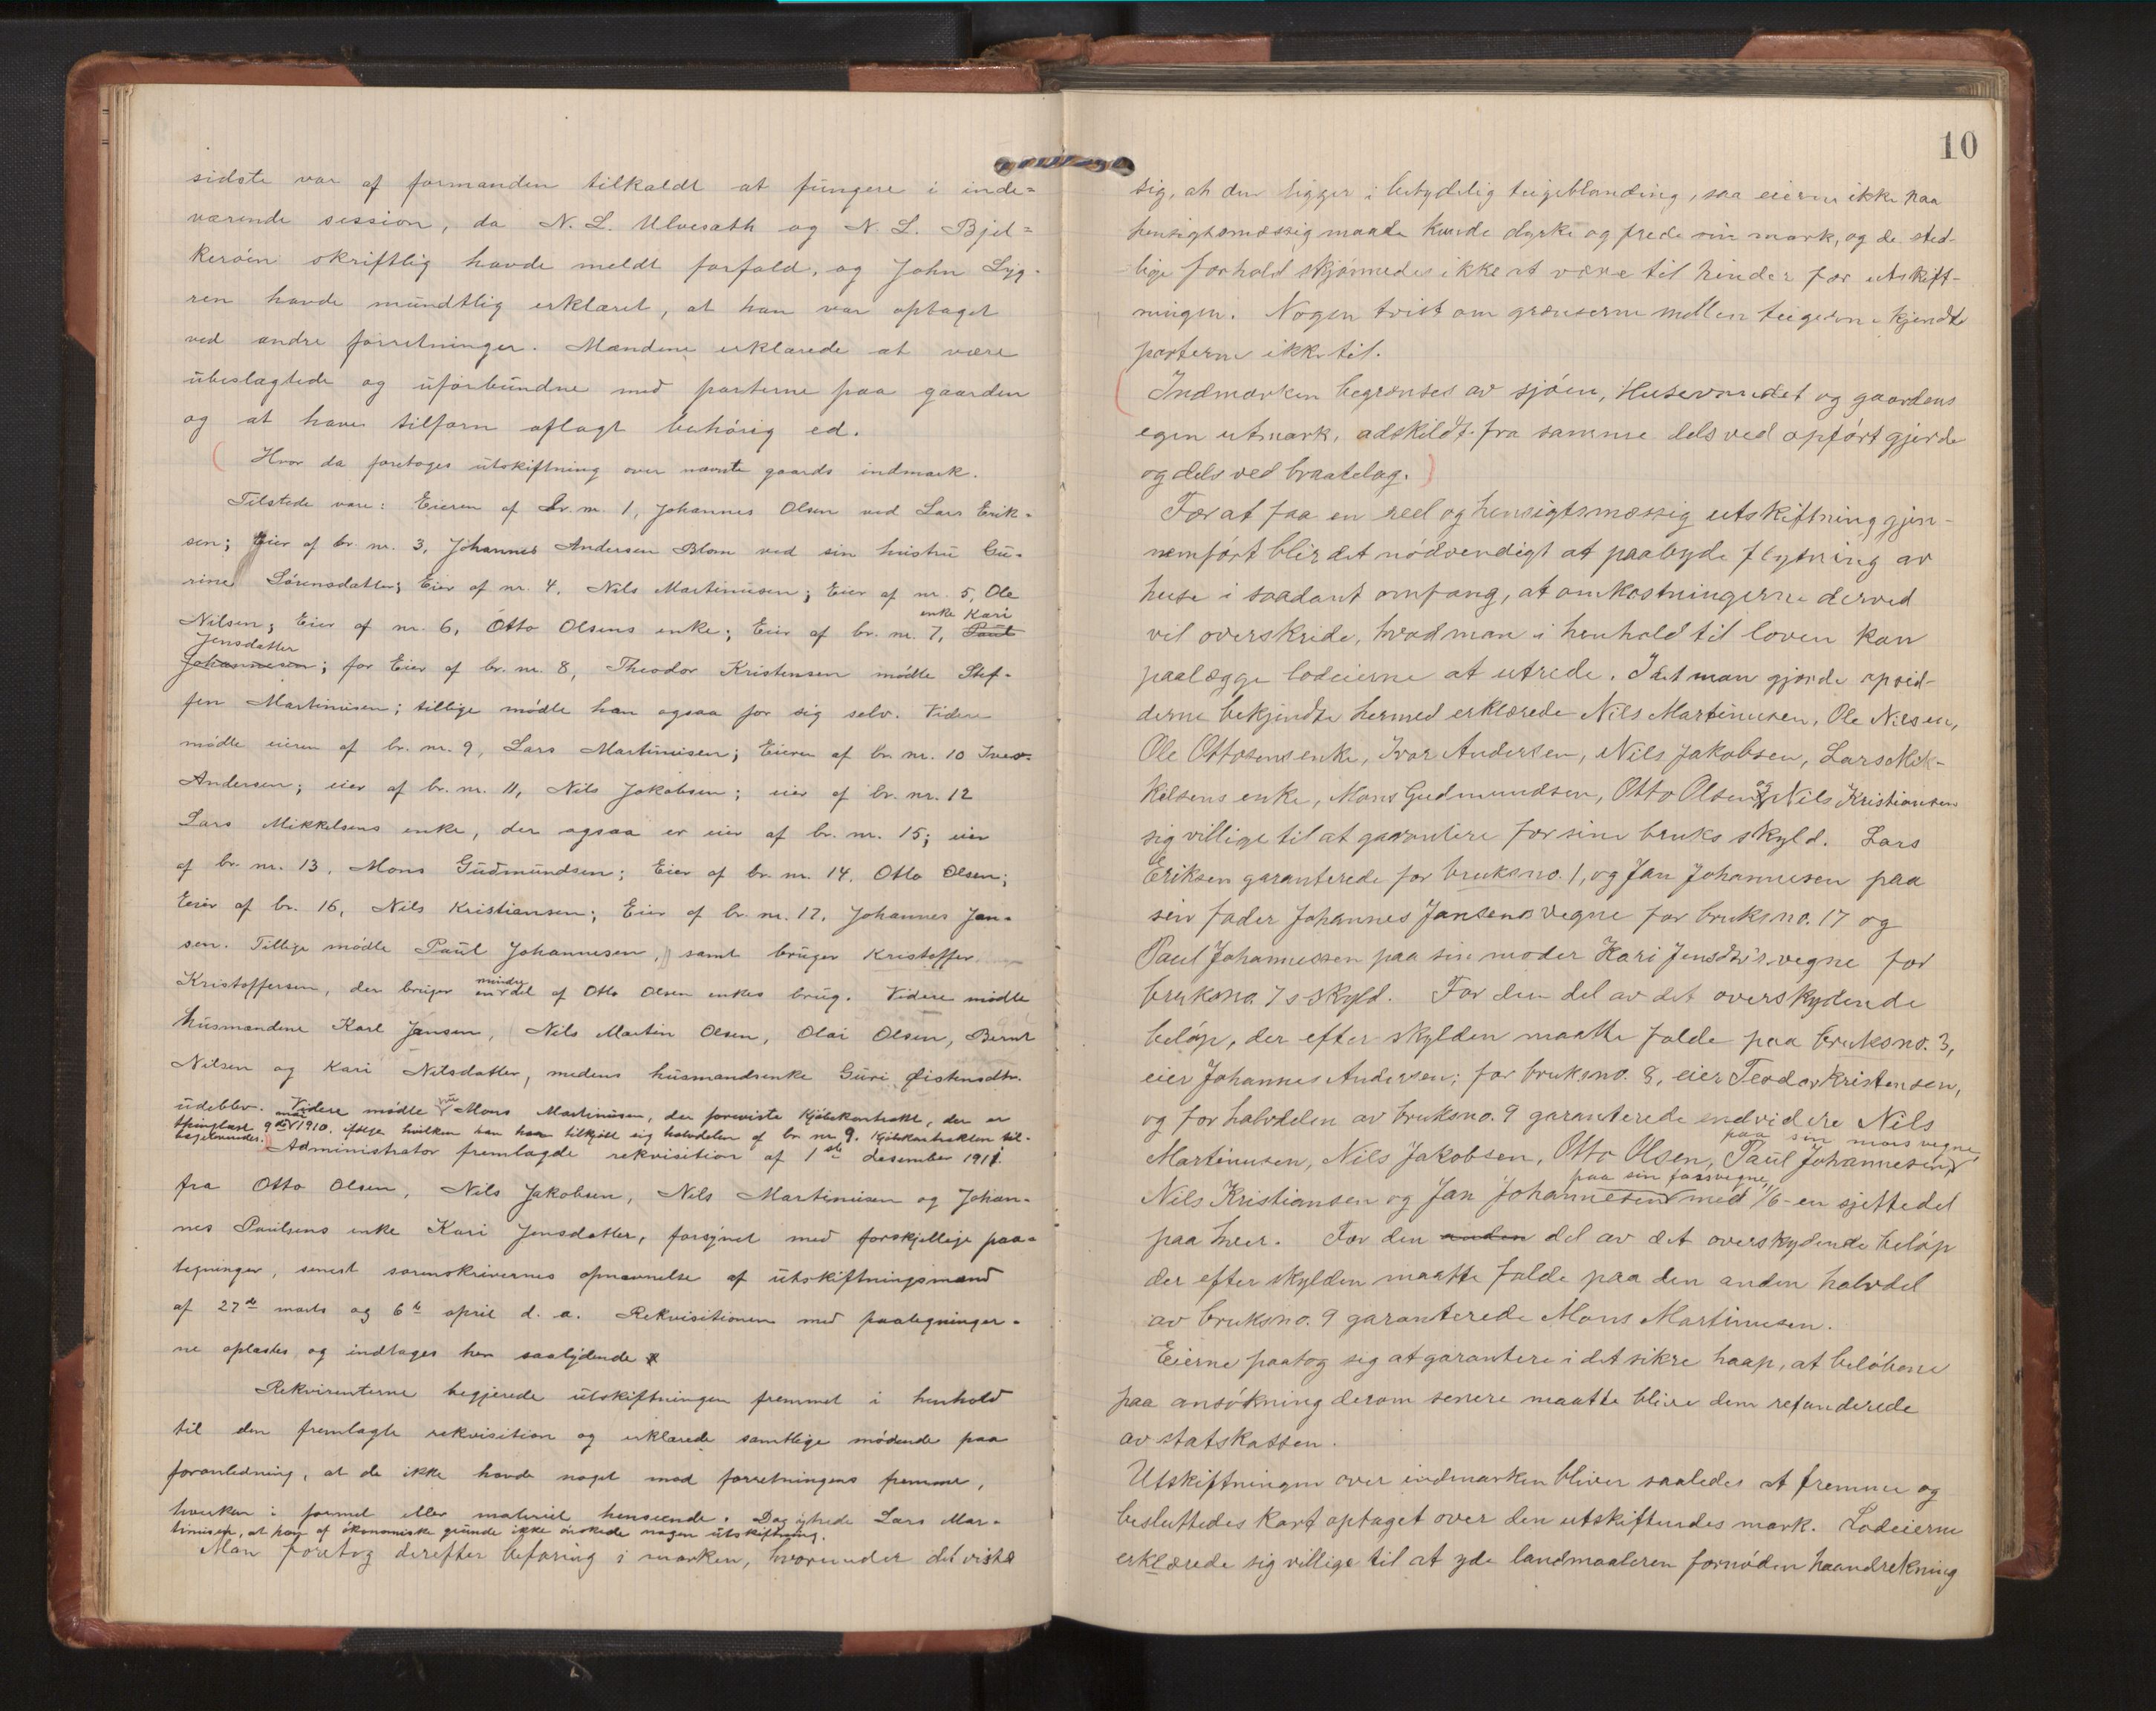 sidste var af formanden tilkaldt at fungere i inde=
værende session, da N. L. Ulvesæth og N. L. Bjel=
keröen skriftlig havde meldt forfald, og John Lyg-
ren havde mundtlig erklæret, at han var optaget
ved andre forretninger. Mændene erklærede at være
ubeslægtede og uforbundne med parterne paa gaarden
og at have tilforn aflagt behörig ed.
Hvor da foretoges utskiftning over nævnte gaards indmark.
Tilstede vare: Eieren af br. nr. 1, Johannes Olsen ved Lars Erik-
sen; Eier af br. nr. 3, Johannes Andersen Blom ved sin hustru Gu-
rine Sörensdatter; Eier af nr. 4, Nils Martinusen; Eier af nr. 5, Ole
enke Kari
Nilsen; Eier af nr. 6, Otto Olsens enke; Eier af br. nr. 7, Paul
Jensdatter
Johannesen; for Eier af br. nr. 8, Theodor Kristensen mödte Stef-
fen Martinusen; tillige mödte han ogsaa for sig selv. Videre
mödte eieren af br. nr. 9, Lars Martinusen; Eieren af br. nr. 10 Ivar
Andersen; eier af br. nr. 11, Nils Jakobsen; eier af br. nr. 12
Lars Mikkelsens enke, der ogsaa er eier af br. nr. 15; eier
af br. nr. 13, Mons Gudmundsen; Eier af br. nr. 14, Otto Olsen;
Eier af br. 16, Nils Kristiansen; Eier af br. nr. 17, Johannes Jan-
sen. Tillige mödte Paul Johannesen, samt bruger Kristoffer
mindre
Kristoffersen, der bruger en del af Otto Olsen enkes brug. Videre mödte
husmændene Karl Jansen, Nils Martin Olsen, Olai Olsen, Bernt
Nilsen og Kari Nilsdatter, medens husmandsenke Guri Øistensdtr.
udeblev. Videre mödte Mons Martinusen, der foreviste kjöbekontrakt, der er
thinglæst 9de 1910, ifölge hvilken han har tilkjöbt sig halvdelen af br. nr. 9. Kjöbekontrakten til-
bageleveredes. Administrator fremlagde rekvisition af 1ste desember 1911
fra Otto Olsen, Nils Jakobsen, Nils Martinusen og Johan-
nes Paulsens enke Kari Jensdatter, forsynet med forskjellige paa-
tegninger, senest sorenskriverens opnævnelse af utskiftningsmænd
af 27de marts og 6te april d. a. Rekvisitionen med paategninger-
ne oplæstes og indtages her saalydende
Rekvirenterne begjerede utskiftningen fremmet i henhold
til den fremlagte rekvisition og erklærede samtlige mödende paa
foranledning, at de ikke havde noget mod forretningens fremme,
hverken i formel eller materiel henseende. Dog ytrede Lars Mar-
tinusen, at han af ökonomiske grunde ikke önskede nogen utskiftning.
Man foretog derefter befaring i marken, hvorunder det viste
10
sig, at den ligger i betydelig teigeblanding, saa eierne ikke paa
hensigtsmæssig maade kunde dyrke og frede sin mark, og de sted-
lige forhold skjönnedes ikke at være til hinder for utskift-
ningen. Nogen tvist om grænserne mellem teigerne kjendte
parterne ikke til.
Indmarken begrænses av sjöen, Husevandet og gaardens
egen utmark, adskildt fra samme dels ved opfört gjerde
og dels ved braatelag.
For at faa en reel og hensigtsmæssig utskiftning gjen-
nemfört blir det nödvendigt at paabyde flytning av
huse i saadant omfang, at omkostningerne derved
vil overskride, hvad man i henhold til loven kan
paalægge lodeierne at utrede. Idet man gjorde opsid-
derne bekjendte hermed erklærede Nils Martinusen, Ole Nilsen,
Ole Ottosens enke, Ivar Andersen, Nils Jakobsen, Lars Mik-
kelsens enke, Mons Gudmundsen, Otto Olsen og Nils Kristiansen
sig villige til at garantere for sine bruks skyld. Lars
Eriksen garanterede for bruksno. 1, og Jan Johannesen paa
sin fader Johannes Jansens vegne for bruksno. 17 og
Paul Johannessen paa sin moder Kari Jensdtr's vegne for
bruksno. 7s skyld. For den del av det overskydende
belöp, der efter skylden maatte falde paa bruksno. 3,
eier Johannes Andersen; for bruksno. 8, eier Teodor Kristensen,
og for halvdelen av bruksno. 9 garanterede endvidere Nils
paa sin mors vegne,
Martinusen, Nils Jakobsen, Otto Olsen, Paul Johannesen,
paa sin farsvegne,
Nils Kristiansen og Jan Johannesen med 1/6 - en sjettedel
paa hver. For den anden del av det overskydende belöp
der efter skylden maatte falde paa den anden halvdel
av bruksno. 9 garanterede Mons Martinusen.
Eierne paatog sig at garantere i det sikre haap, at belöbene
paa ansökning derom senere maatte blive dem refunderede
av statskassen.
Utskiftningen over indmarken bliver saaledes at fremme og
besluttedes kart optaget over den utskiftendes mark. Lodeierne
erklærede sig villige til at yde landmaaleren fornöden haandrekning